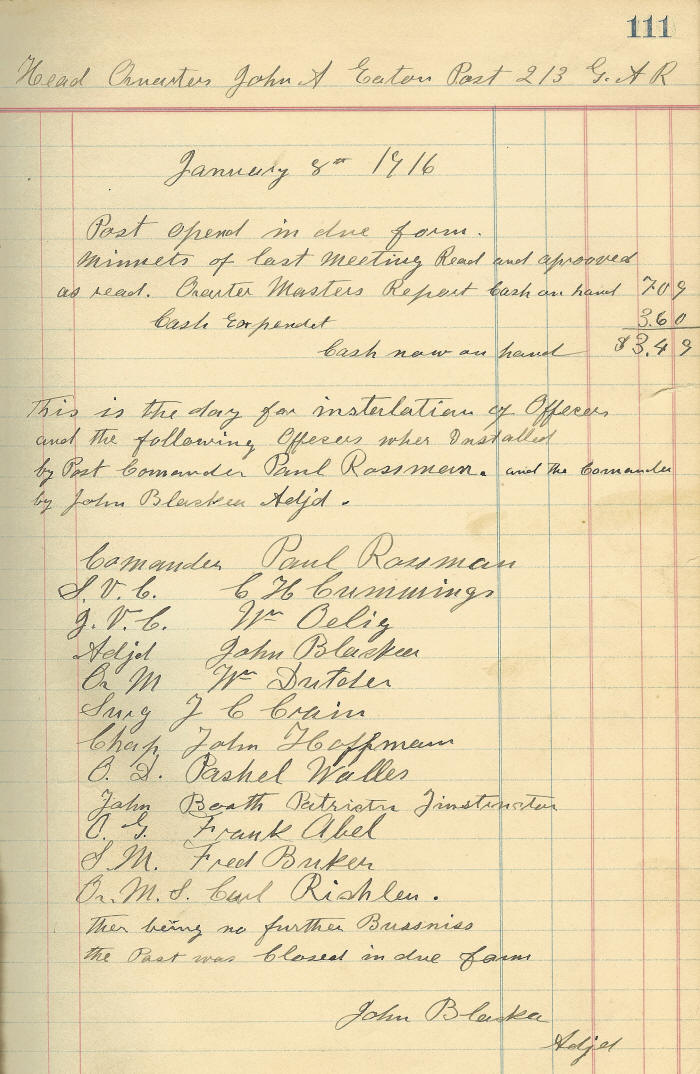 111
Head Quarters John A Eaton Post 213 G. A R
January 8th 1916
Post opend in due form.
Minnets of last Meeting Read and aprooved
as read. Qarter Masters Report Cash on hand 7.09
Cash Expendet 3.60
Cash now on hand $3.49
This is the day for instalation of Offecers
and the following Offecers wher Installed
by Post Comander Paul Rossman. and the Comander
by John Blaska Adjd.
Comander Paul Rossman
S. V. C. C H Cummings
J. V. C. Wm Oelig
Adjd John Blaska
Qr M Wm Dutcher
Surg J C Crain
Chap John Hoffman
O. D. Pashel Walles
John Booth Patriotn Jinstructor
O. G. Frank Abel
S. M. Fred Buker
Qr. M. S. Carl Rishlen.
ther being no further Bussniss
the Post was Closed in due form
John Blaska
Adjd